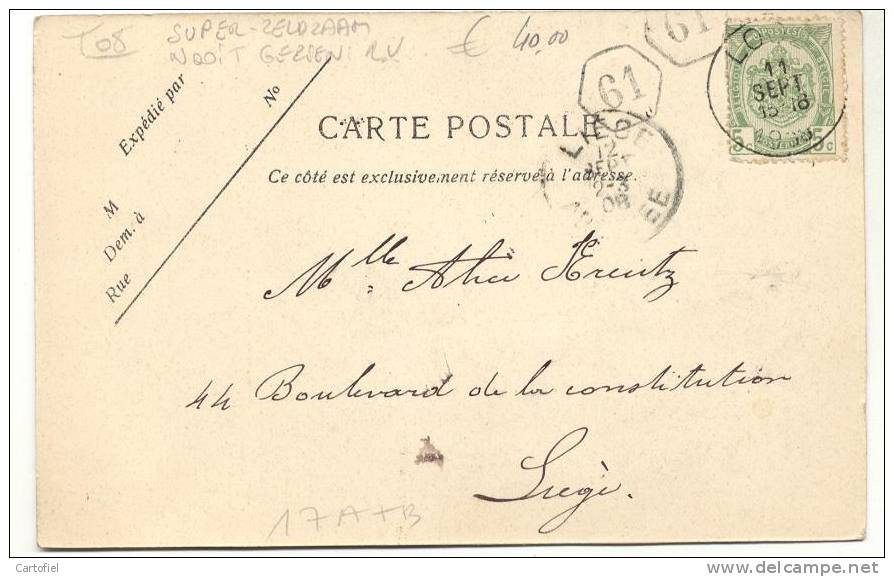 T08
SUPER-ZELDZAAM
NOOIT GEZIEN! R.V.
€ 40,00
Expédié par
No
M
Dem. à
Rue
61
61
11
SEPT
15-18
BELGIQUE POSTES BELGIE
5c 5c
CARTE POSTALE
LIEGE
12
SEPT
08
Ce côté est exclusivement réservé à l'adresse.
Mlle Alice Kreutz
44 Boulevard de la constitution
Liège.
17A+B
Cartofiel
delcampe.net